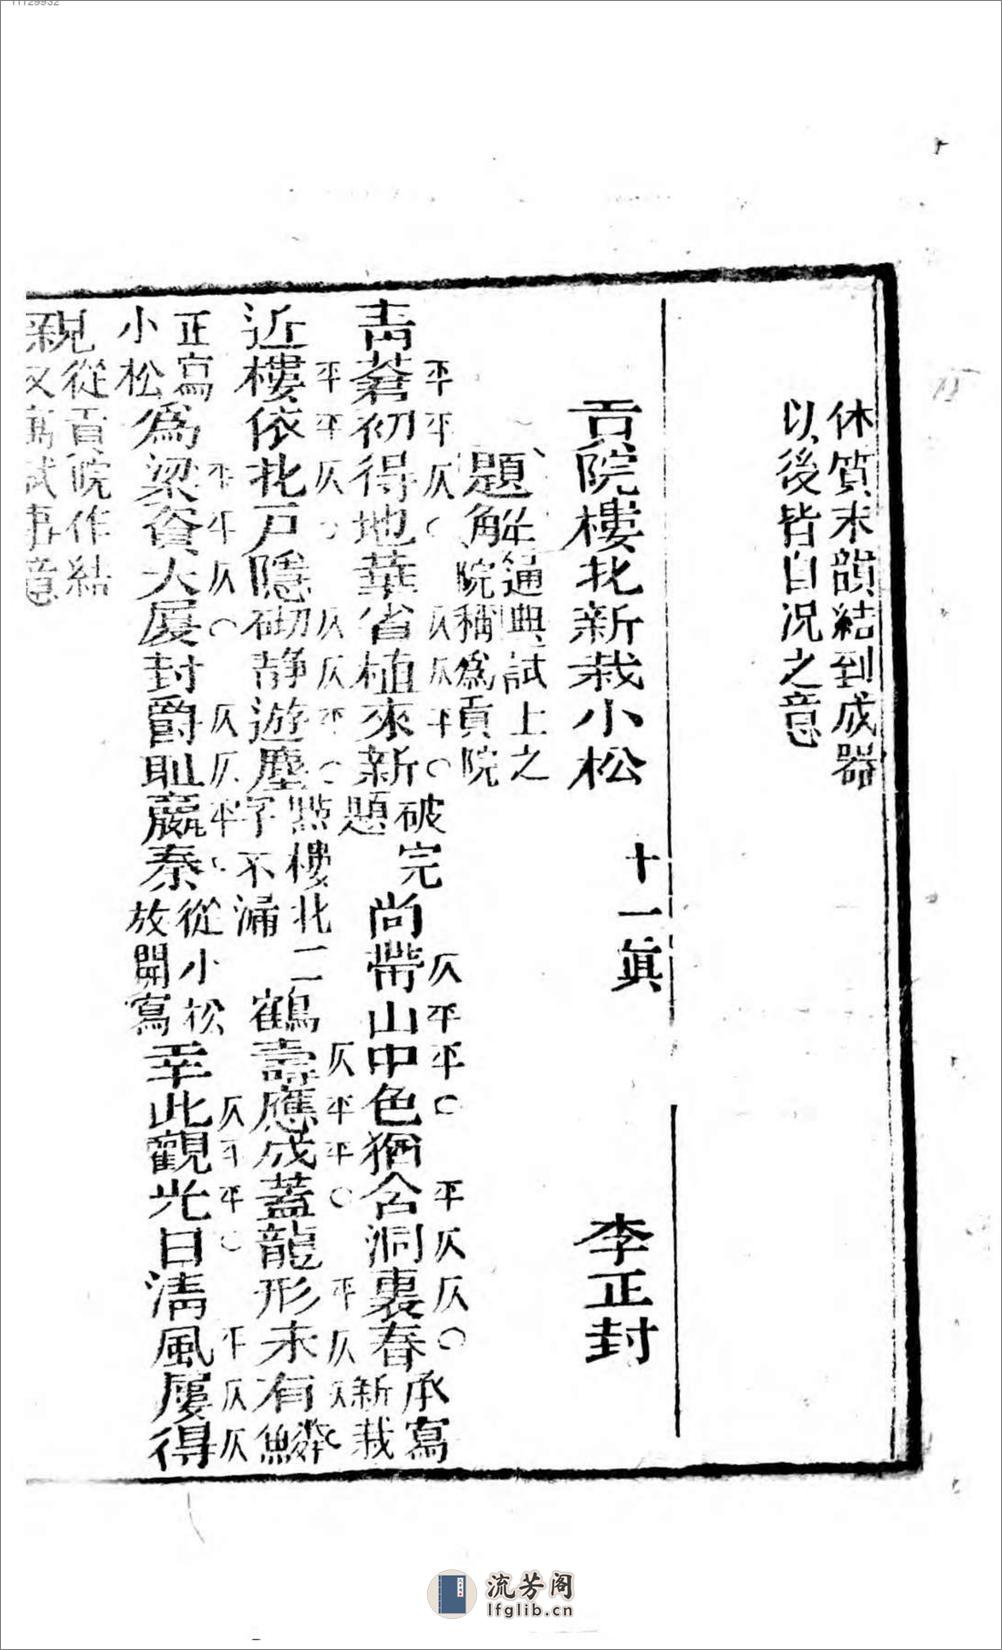 休質末韻結到成器
以後皆自況之意
貢院樓北新栽小松 十一眞 李正封
題解 通典試上之
院稱爲貢院
平平仄○ 仄仄平○ 仄平平○ 平仄仄○
靑蒼初得地華省植來新 破完題 尚帶山中色猶含洞裏春 承寫新栽
平平仄○ 仄仄平○ 仄平平○ 平仄仄○
近樓依北戸隱砌靜遊塵 點樓北二字不漏 鶴壽應成蓋龍形未有鱗
平平仄○ 仄仄平○ 仄平平○ 平仄仄
正寫小松 爲梁資大厦封爵恥嬴秦 從小松放開寫 幸此觀光日淸風屢得
親 見從貢院作結
又寓試事意
流芳阁
lfglib.cn